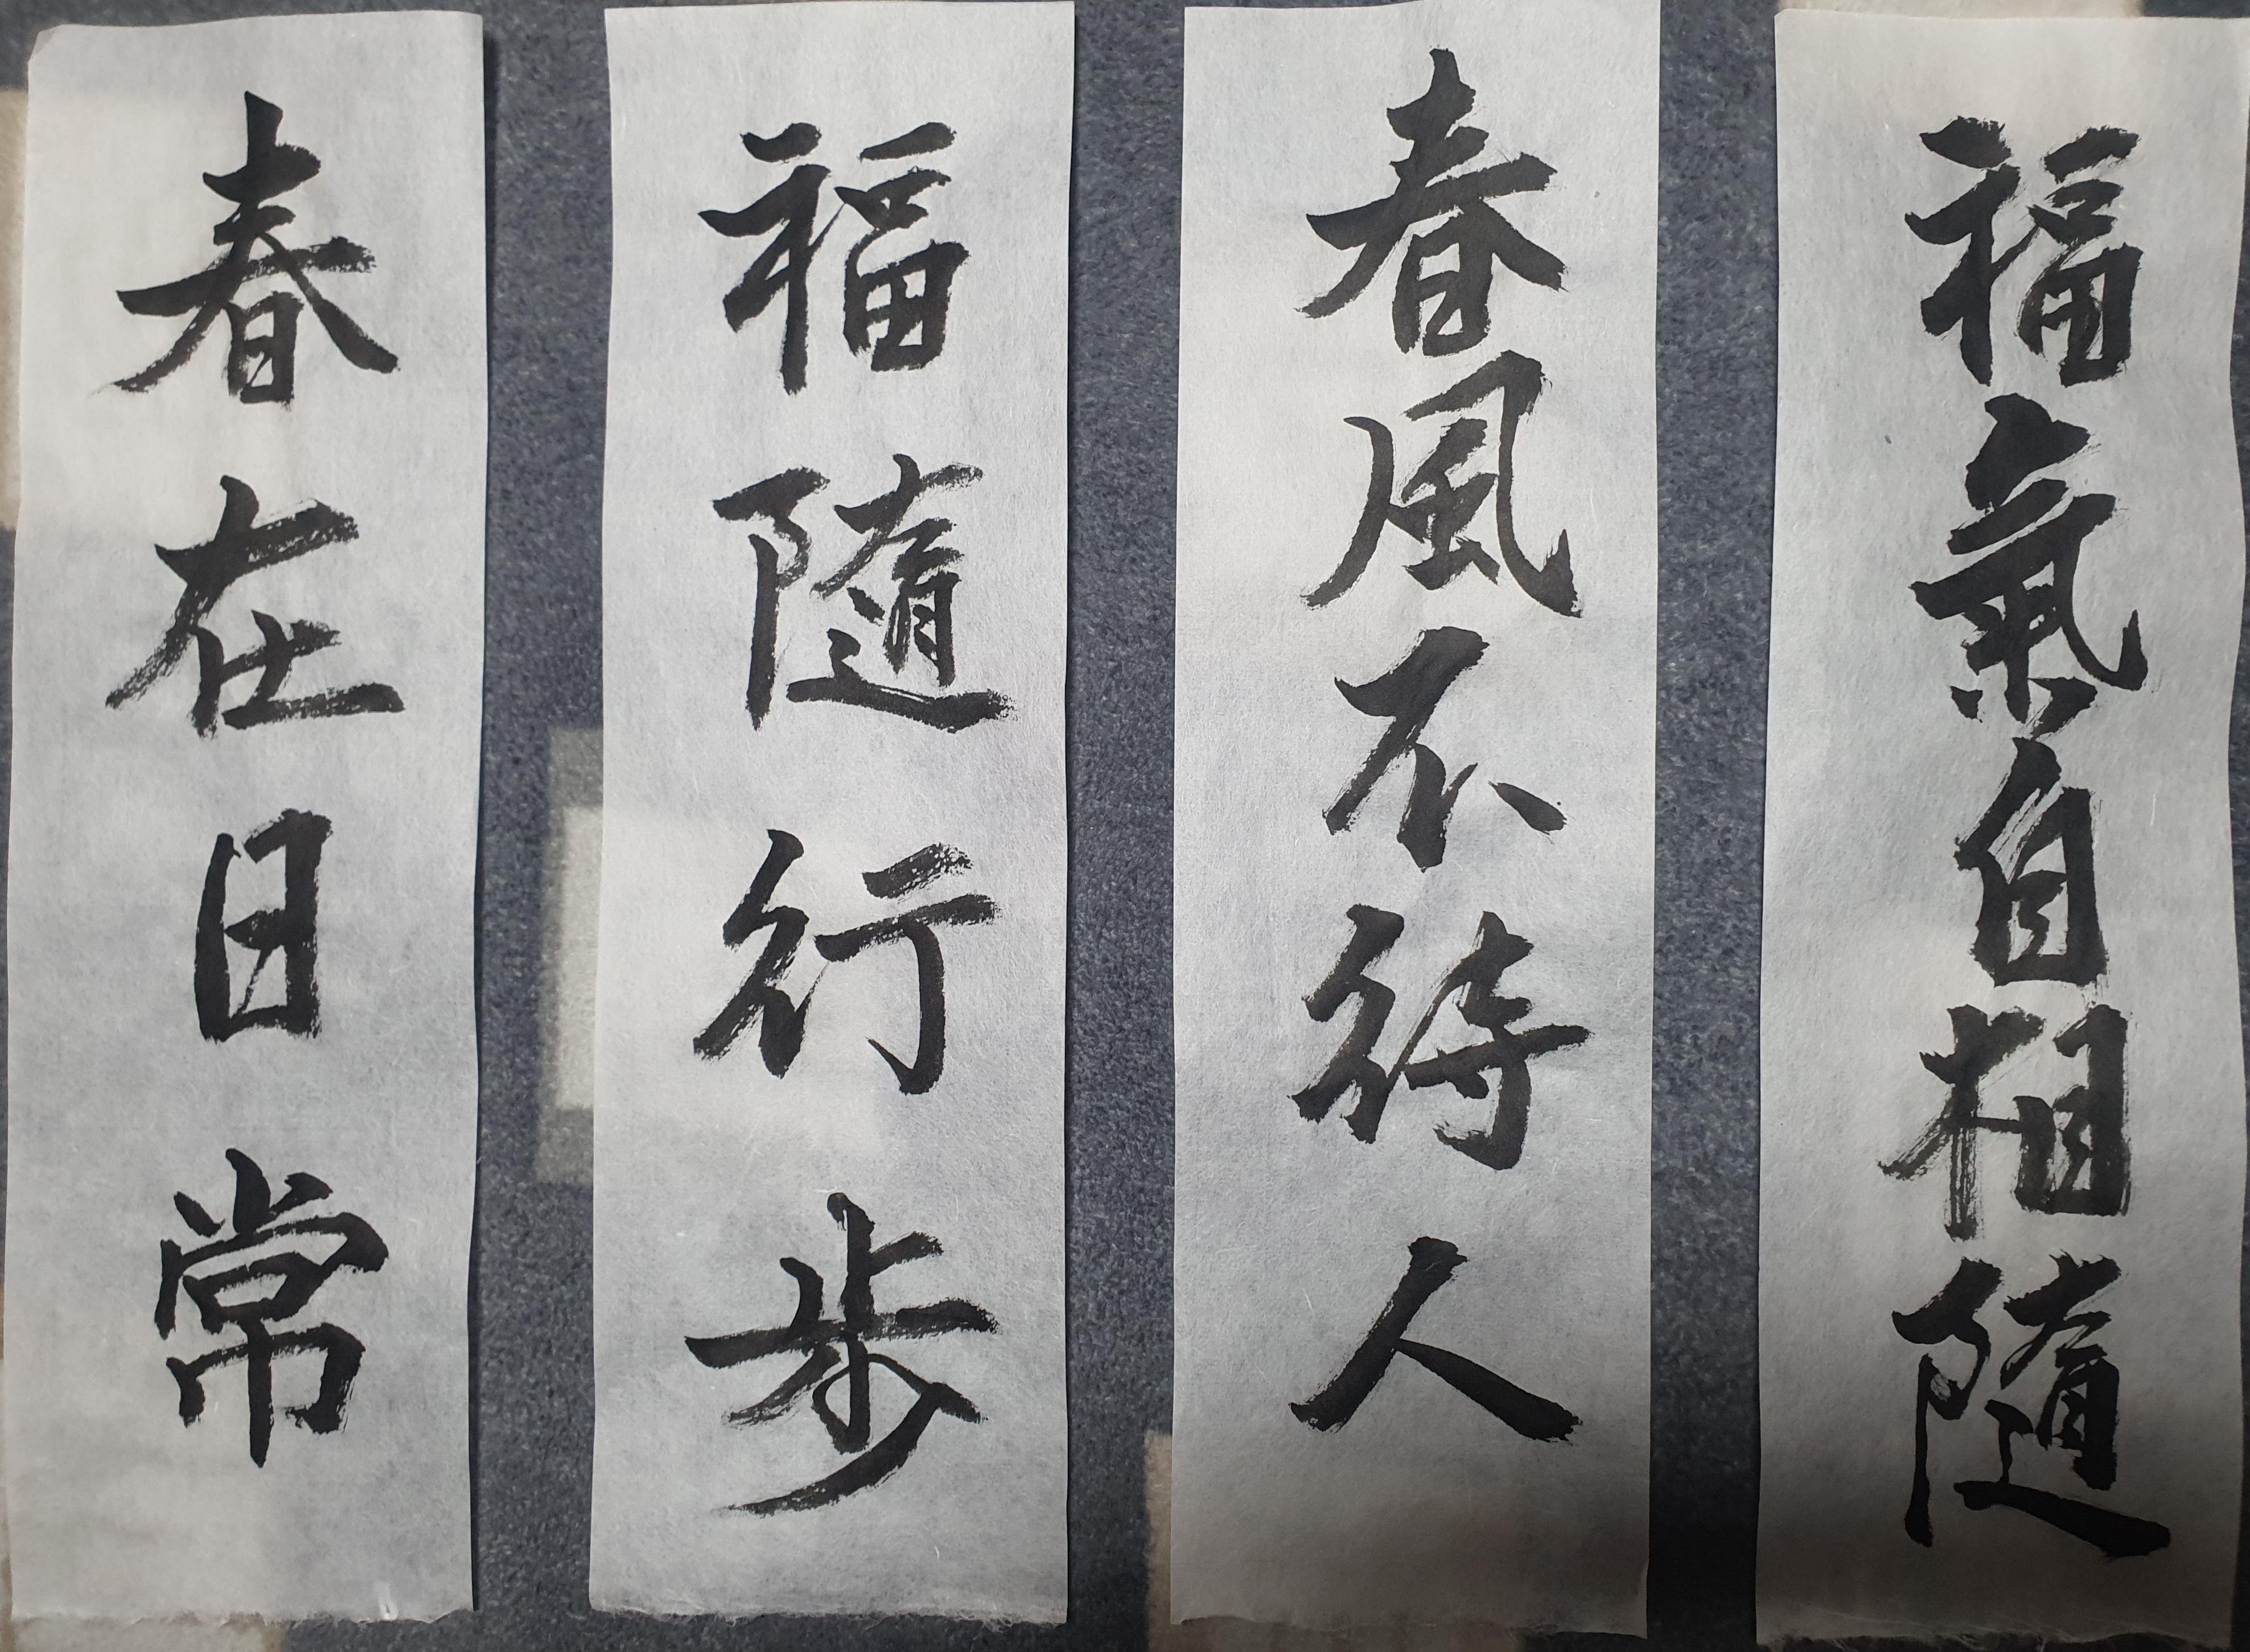 福氣自相隨
春風不待人
福隨行步
春在日常